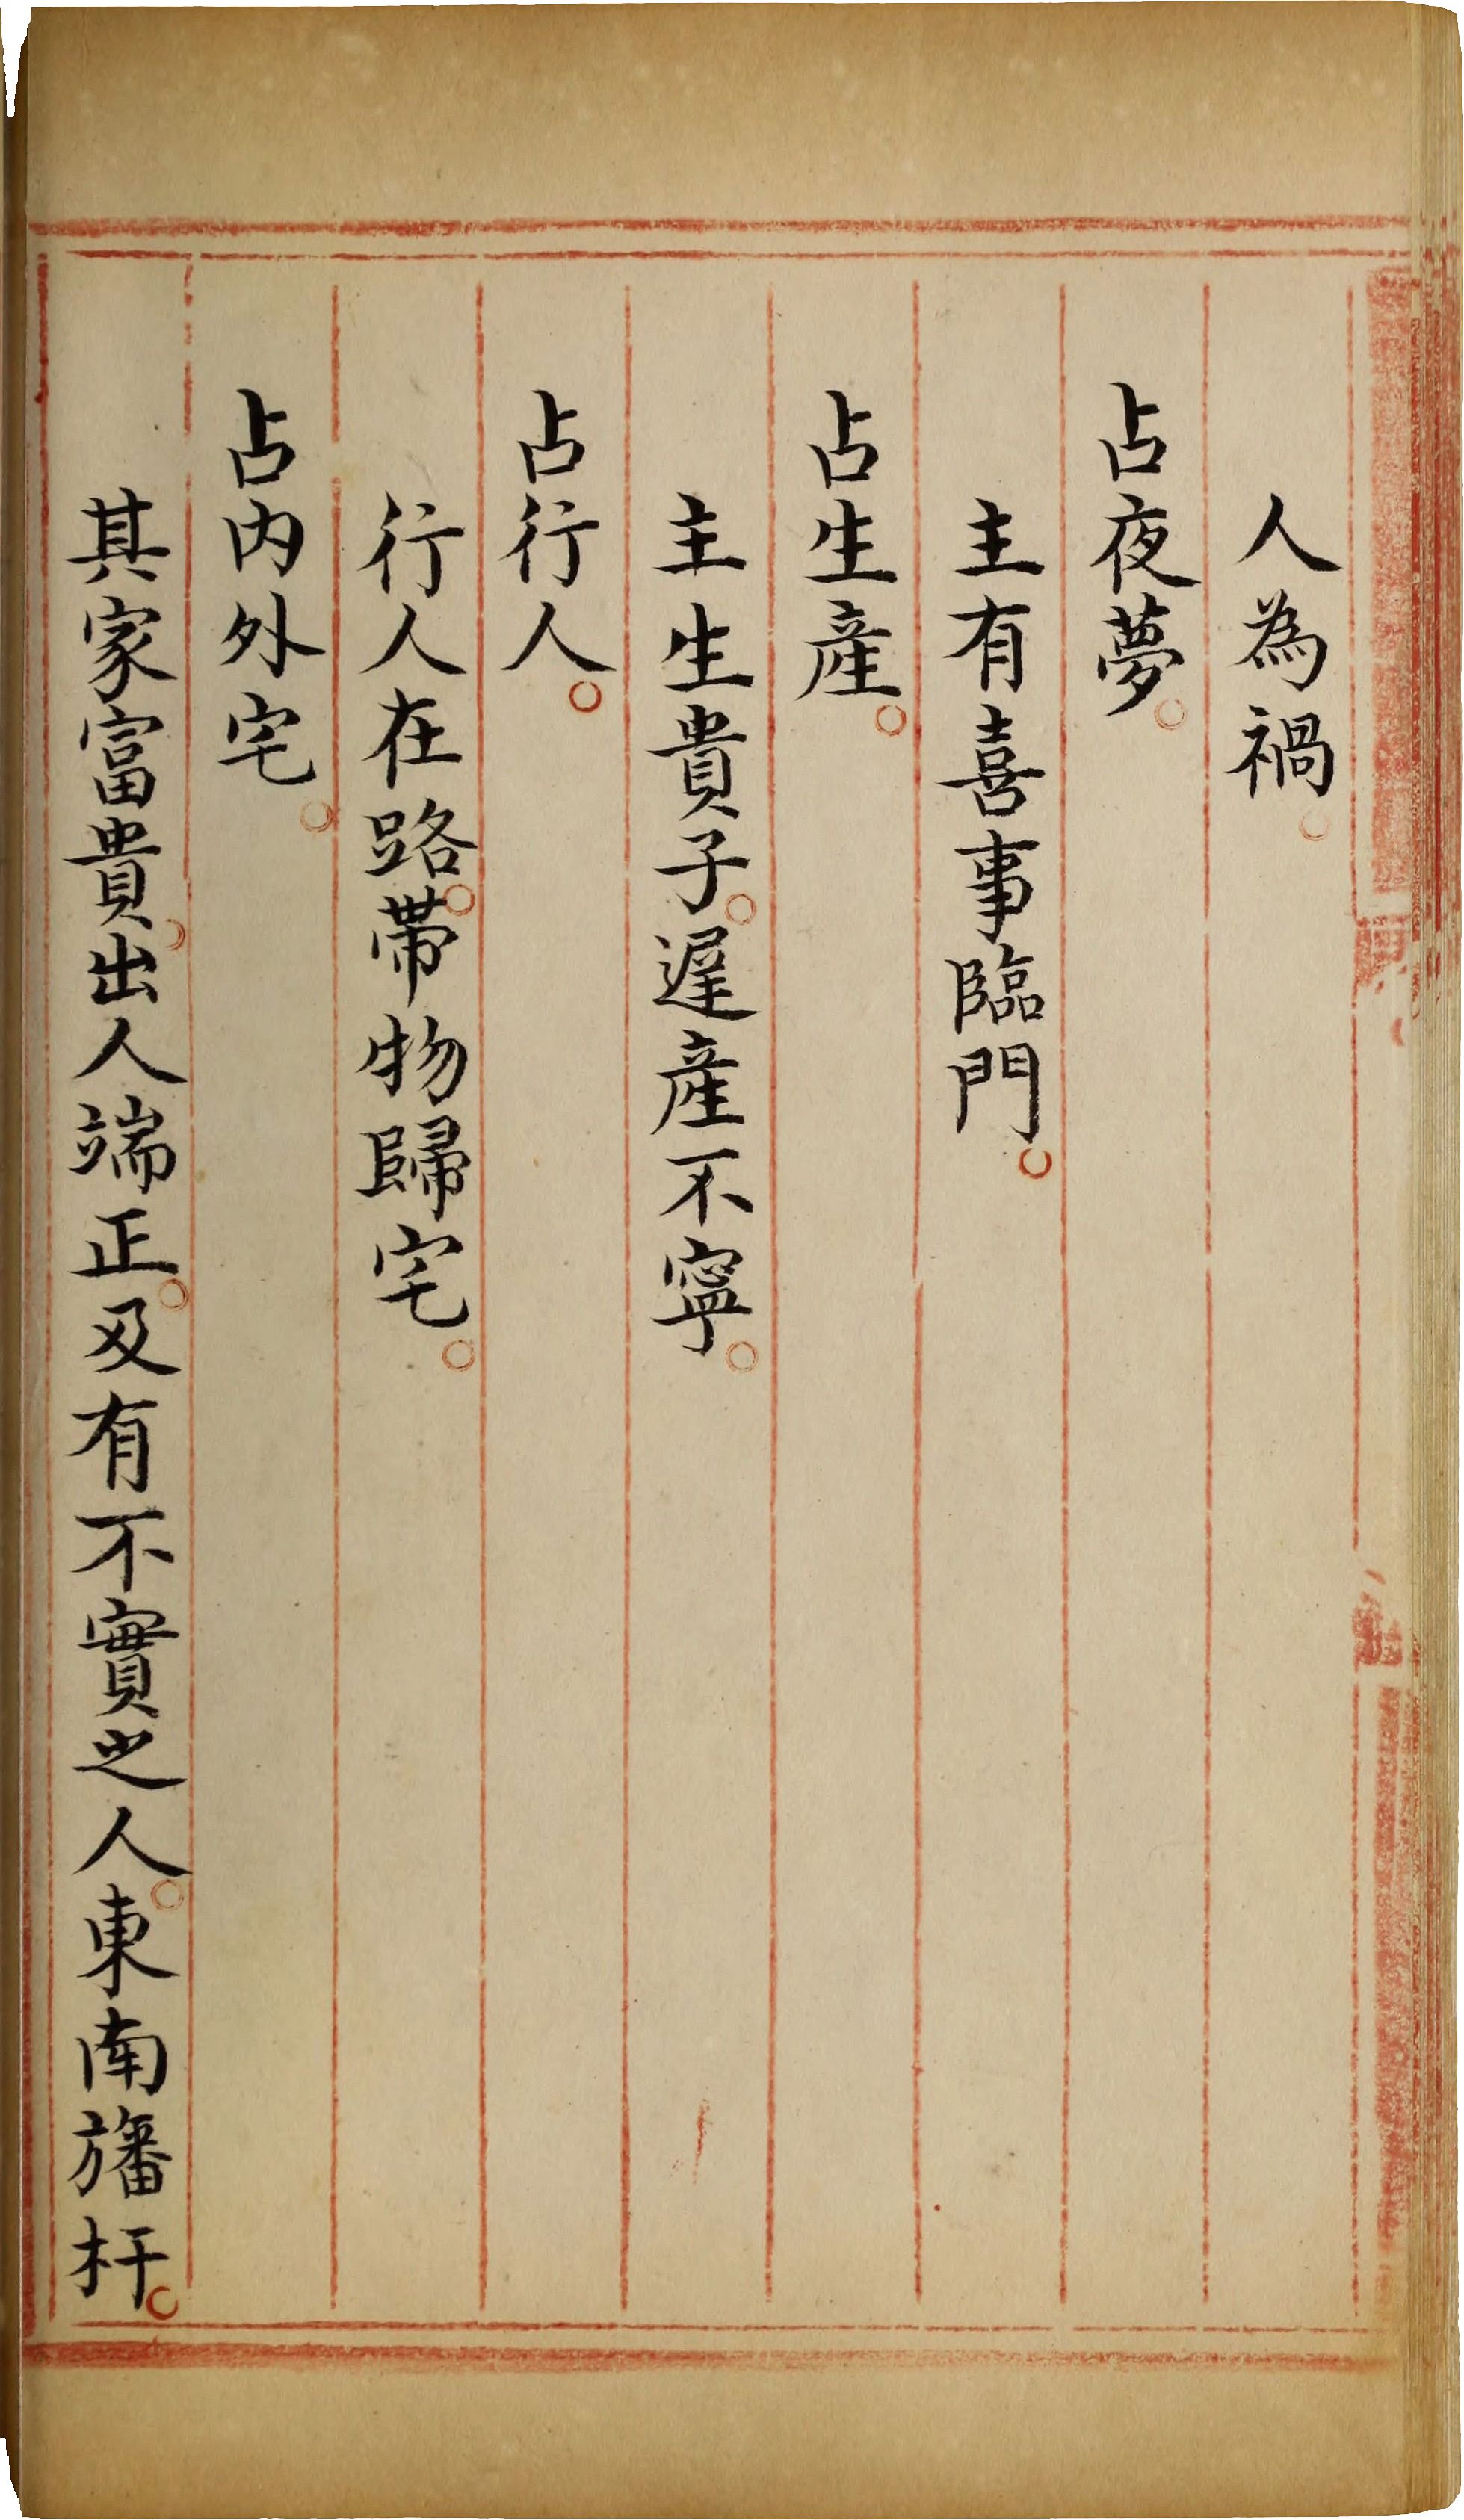 人為禍。
占夜夢。
主有喜事臨門。
占生產。
主生貴子。遲產不寧。
占行人。
行人在路。帶物歸宅。
占內外宅。
其家富貴。出人端正。及有不實之人。東南旛杆。